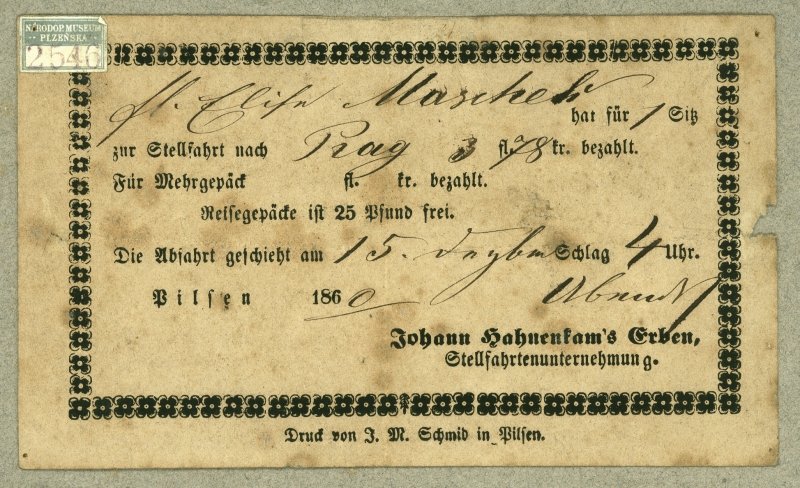 NÁRODOP. MUSEUM
PLZEŇSKA
2546
fl. Elise Maschek
hat für 1 Sitz
zur Stellfahrt nach Prag 3 fl. 78 kr. bezahlt.
Für Mehrgepäck fl. kr. bezahlt.
Reisegepäcke ist 25 Pfund frei.
Die Abfahrt geschieht am 15. Schlag 4 Uhr.
Pilsen 1860 Abends
Johann Hahnenkam's Erben,
Stellfahrtenunternehmung.
Druck von J. M. Schmid in Pilsen.